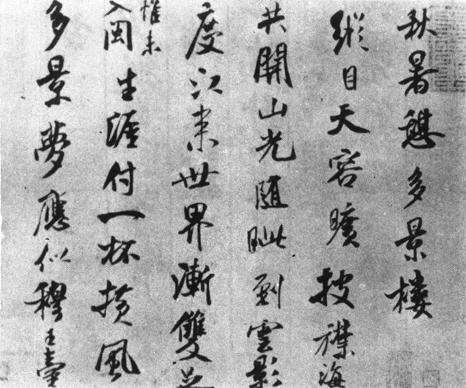 秋暑憩多景樓
縱目天容曠披襟海
共開山光隨眺到雲影
度江来世界漸雙足
惟未
入閩生涯付一杯横風
多景夢應似穆王臺